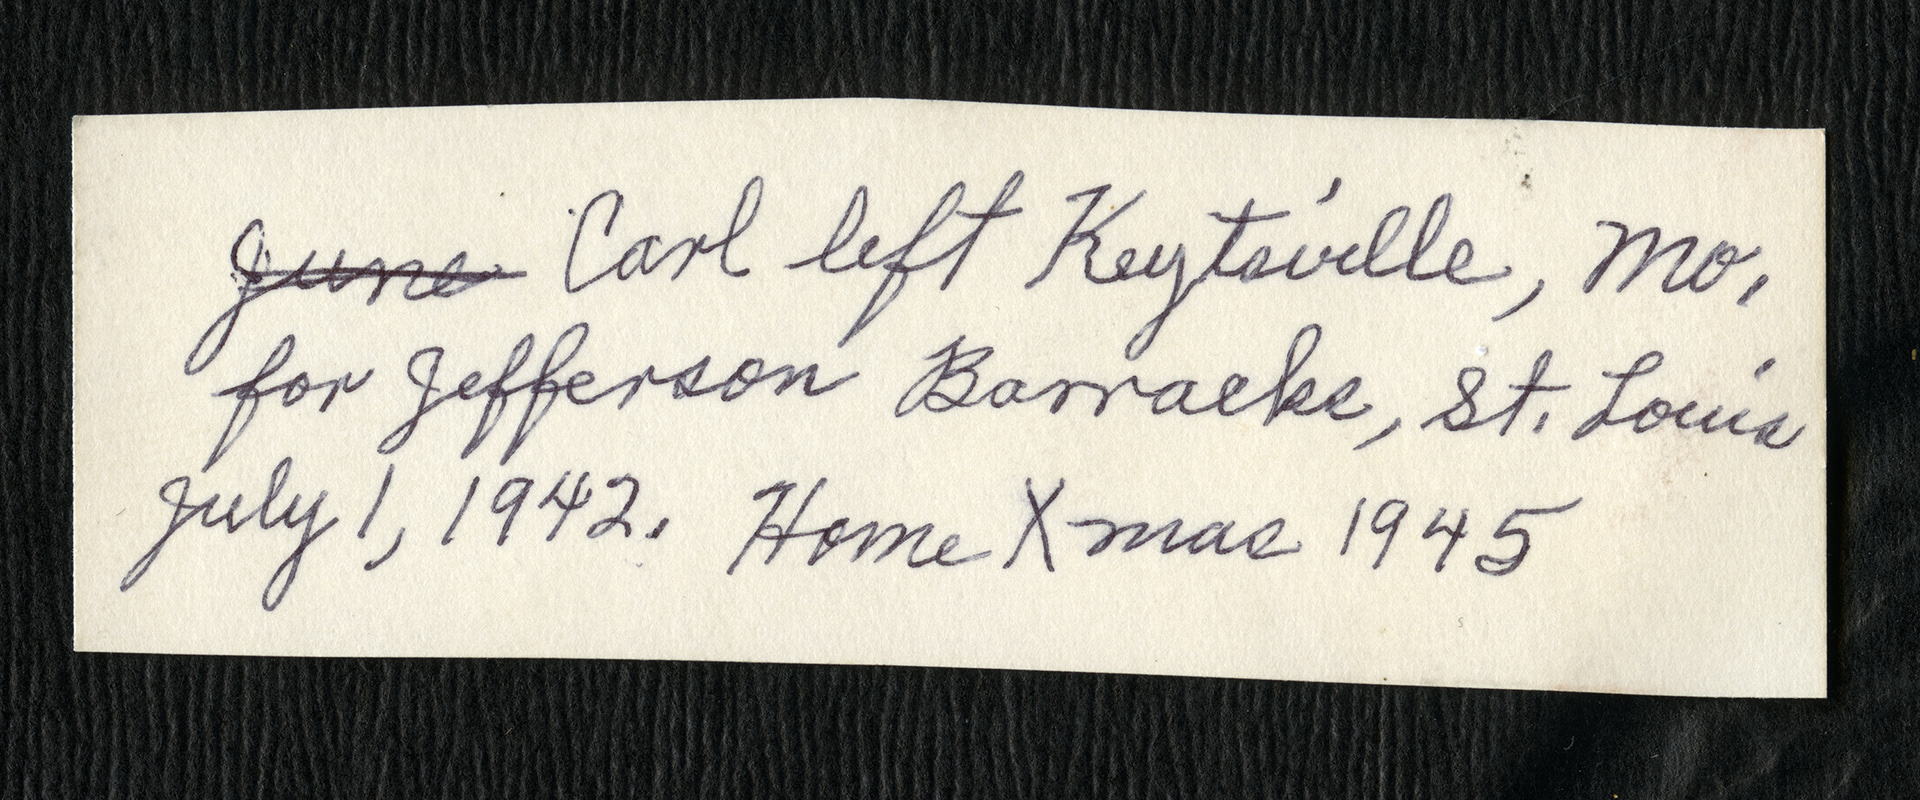 June Carl left Keytsville, Mo.
for Jefferson Barracks, St. Louis
July 1, 1942. Home Xmas 1945